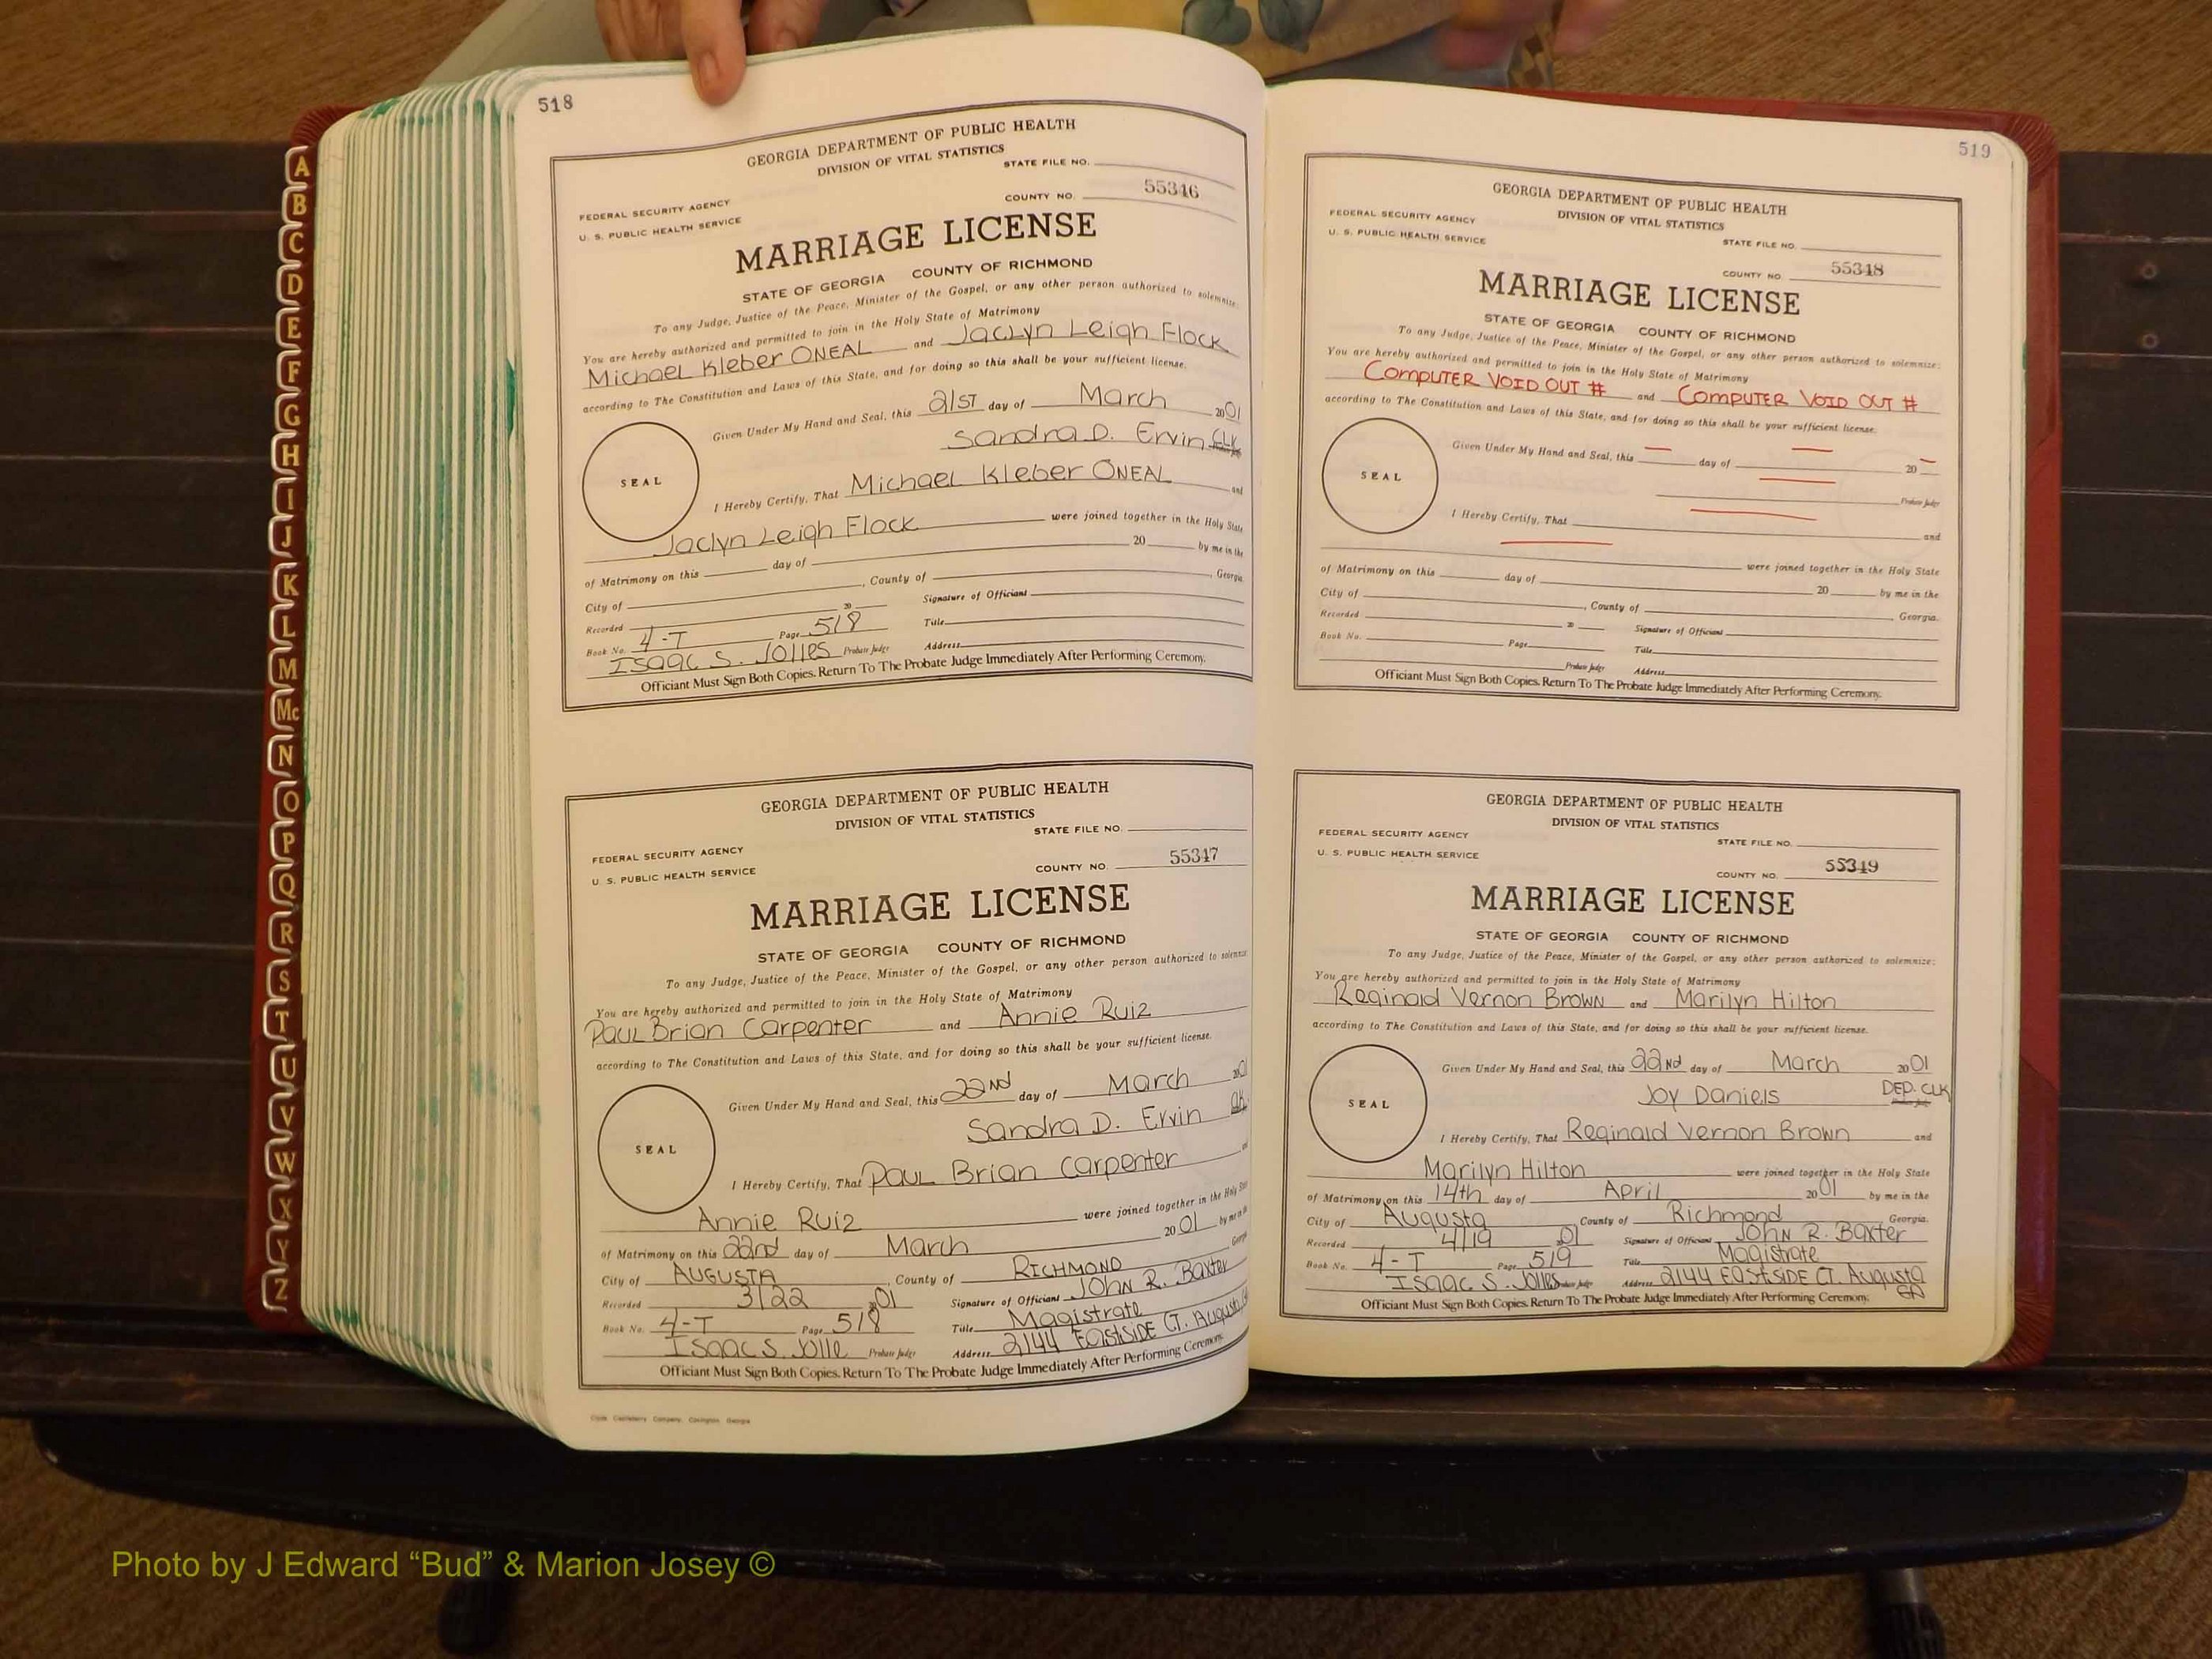 A
B
C
D
E
F
G
H
I
J
K
L
M
Mc
N
O
P
Q
R
S
T
U
V
W
X
Y
Z
518
GEORGIA DEPARTMENT OF PUBLIC HEALTH
DIVISION OF VITAL STATISTICS
STATE FILE NO.
FEDERAL SECURITY AGENCY
COUNTY NO. 55346
U. S. PUBLIC HEALTH SERVICE
MARRIAGE LICENSE
STATE OF GEORGIA COUNTY OF RICHMOND
To any Judge, Justice of the Peace, Minister of the Gospel, or any other person authorized to solemnize:
You are hereby authorized and permitted to join in the Holy State of Matrimony
Michael Kleber ONEAL and Jaclyn Leigh Flock
according to The Constitution and Laws of this State, and for doing so this shall be your sufficient license.
Given Under My Hand and Seal, this 21ST day of March 2001
Sandra D. Ervin CLK
SEAL
I Hereby Certify, That Michael Kleber ONEAL and
Jaclyn Leigh Flock were joined together in the Holy State
of Matrimony on this day of 20 by me in the
City of , County of , Georgia.
Recorded 20 Signature of Officiant
Book No. 4-T Page 518 Title
Isaac S. Jolles Probate Judge Address
Officiant Must Sign Both Copies. Return To The Probate Judge Immediately After Performing Ceremony.
GEORGIA DEPARTMENT OF PUBLIC HEALTH
DIVISION OF VITAL STATISTICS
STATE FILE NO.
FEDERAL SECURITY AGENCY
COUNTY NO. 55347
U. S. PUBLIC HEALTH SERVICE
MARRIAGE LICENSE
STATE OF GEORGIA COUNTY OF RICHMOND
To any Judge, Justice of the Peace, Minister of the Gospel, or any other person authorized to solemnize
You are hereby authorized and permitted to join in the Holy State of Matrimony
Paul Brian Carpenter and Annie Ruiz
according to The Constitution and Laws of this State, and for doing so this shall be your sufficient license.
Given Under My Hand and Seal, this 22ND day of March 2001
Sandra D. Ervin
SEAL
I Hereby Certify, That Paul Brian Carpenter and
Annie Ruiz were joined together in the Holy State
of Matrimony on this 22nd day of March 2001 by me in the
City of AUGUSTA , County of RICHMOND Georgia
Recorded 3/22 01 Signature of Officiant John R. Baxter
Book No. 4-T Page 518 Title Magistrate
Isaac S. Jolle Probate Judge Address 2144 EASTSIDE CT. Augusta
Officiant Must Sign Both Copies. Return To The Probate Judge Immediately After Performing Ceremony.
519
GEORGIA DEPARTMENT OF PUBLIC HEALTH
DIVISION OF VITAL STATISTICS
FEDERAL SECURITY AGENCY
STATE FILE NO.
U. S. PUBLIC HEALTH SERVICE
COUNTY NO. 55348
MARRIAGE LICENSE
STATE OF GEORGIA COUNTY OF RICHMOND
To any Judge, Justice of the Peace, Minister of the Gospel, or any other person authorized to solemnize:
You are hereby authorized and permitted to join in the Holy State of Matrimony
COMPUTER VOID OUT # and COMPUTER VOID OUT #
according to The Constitution and Laws of this State, and for doing so this shall be your sufficient license.
Given Under My Hand and Seal, this day of 20
Probate Judge
SEAL
I Hereby Certify, That and
were joined together in the Holy State
of Matrimony on this day of 20 by me in the
City of , County of , Georgia.
Recorded 20 Signature of Officiant
Book No. Page Title
Probate Judge Address
Officiant Must Sign Both Copies. Return To The Probate Judge Immediately After Performing Ceremony.
GEORGIA DEPARTMENT OF PUBLIC HEALTH
DIVISION OF VITAL STATISTICS
FEDERAL SECURITY AGENCY
STATE FILE NO.
U. S. PUBLIC HEALTH SERVICE
COUNTY NO. 55349
MARRIAGE LICENSE
STATE OF GEORGIA COUNTY OF RICHMOND
To any Judge, Justice of the Peace, Minister of the Gospel, or any other person authorized to solemnize:
You are hereby authorized and permitted to join in the Holy State of Matrimony
Reginald Vernon Brown and Marilyn Hilton
according to The Constitution and Laws of this State, and for doing so this shall be your sufficient license.
Given Under My Hand and Seal, this 22nd day of March 2001
Joy Daniels DEP. CLK
SEAL
I Hereby Certify, That Reginald Vernon Brown and
Marilyn Hilton were joined together in the Holy State
of Matrimony on this 14th day of April 2001 by me in the
City of Augusta County of Richmond Georgia.
Recorded 4/19 01 Signature of Officiant John R. Baxter
Book No. 4-T Page 519 Title Magistrate
Isaac S. Jolles Probate Judge Address 2144 EASTSIDE CT. Augusta GA
Officiant Must Sign Both Copies. Return To The Probate Judge Immediately After Performing Ceremony.
Photo by J Edward “Bud” & Marion Josey ©